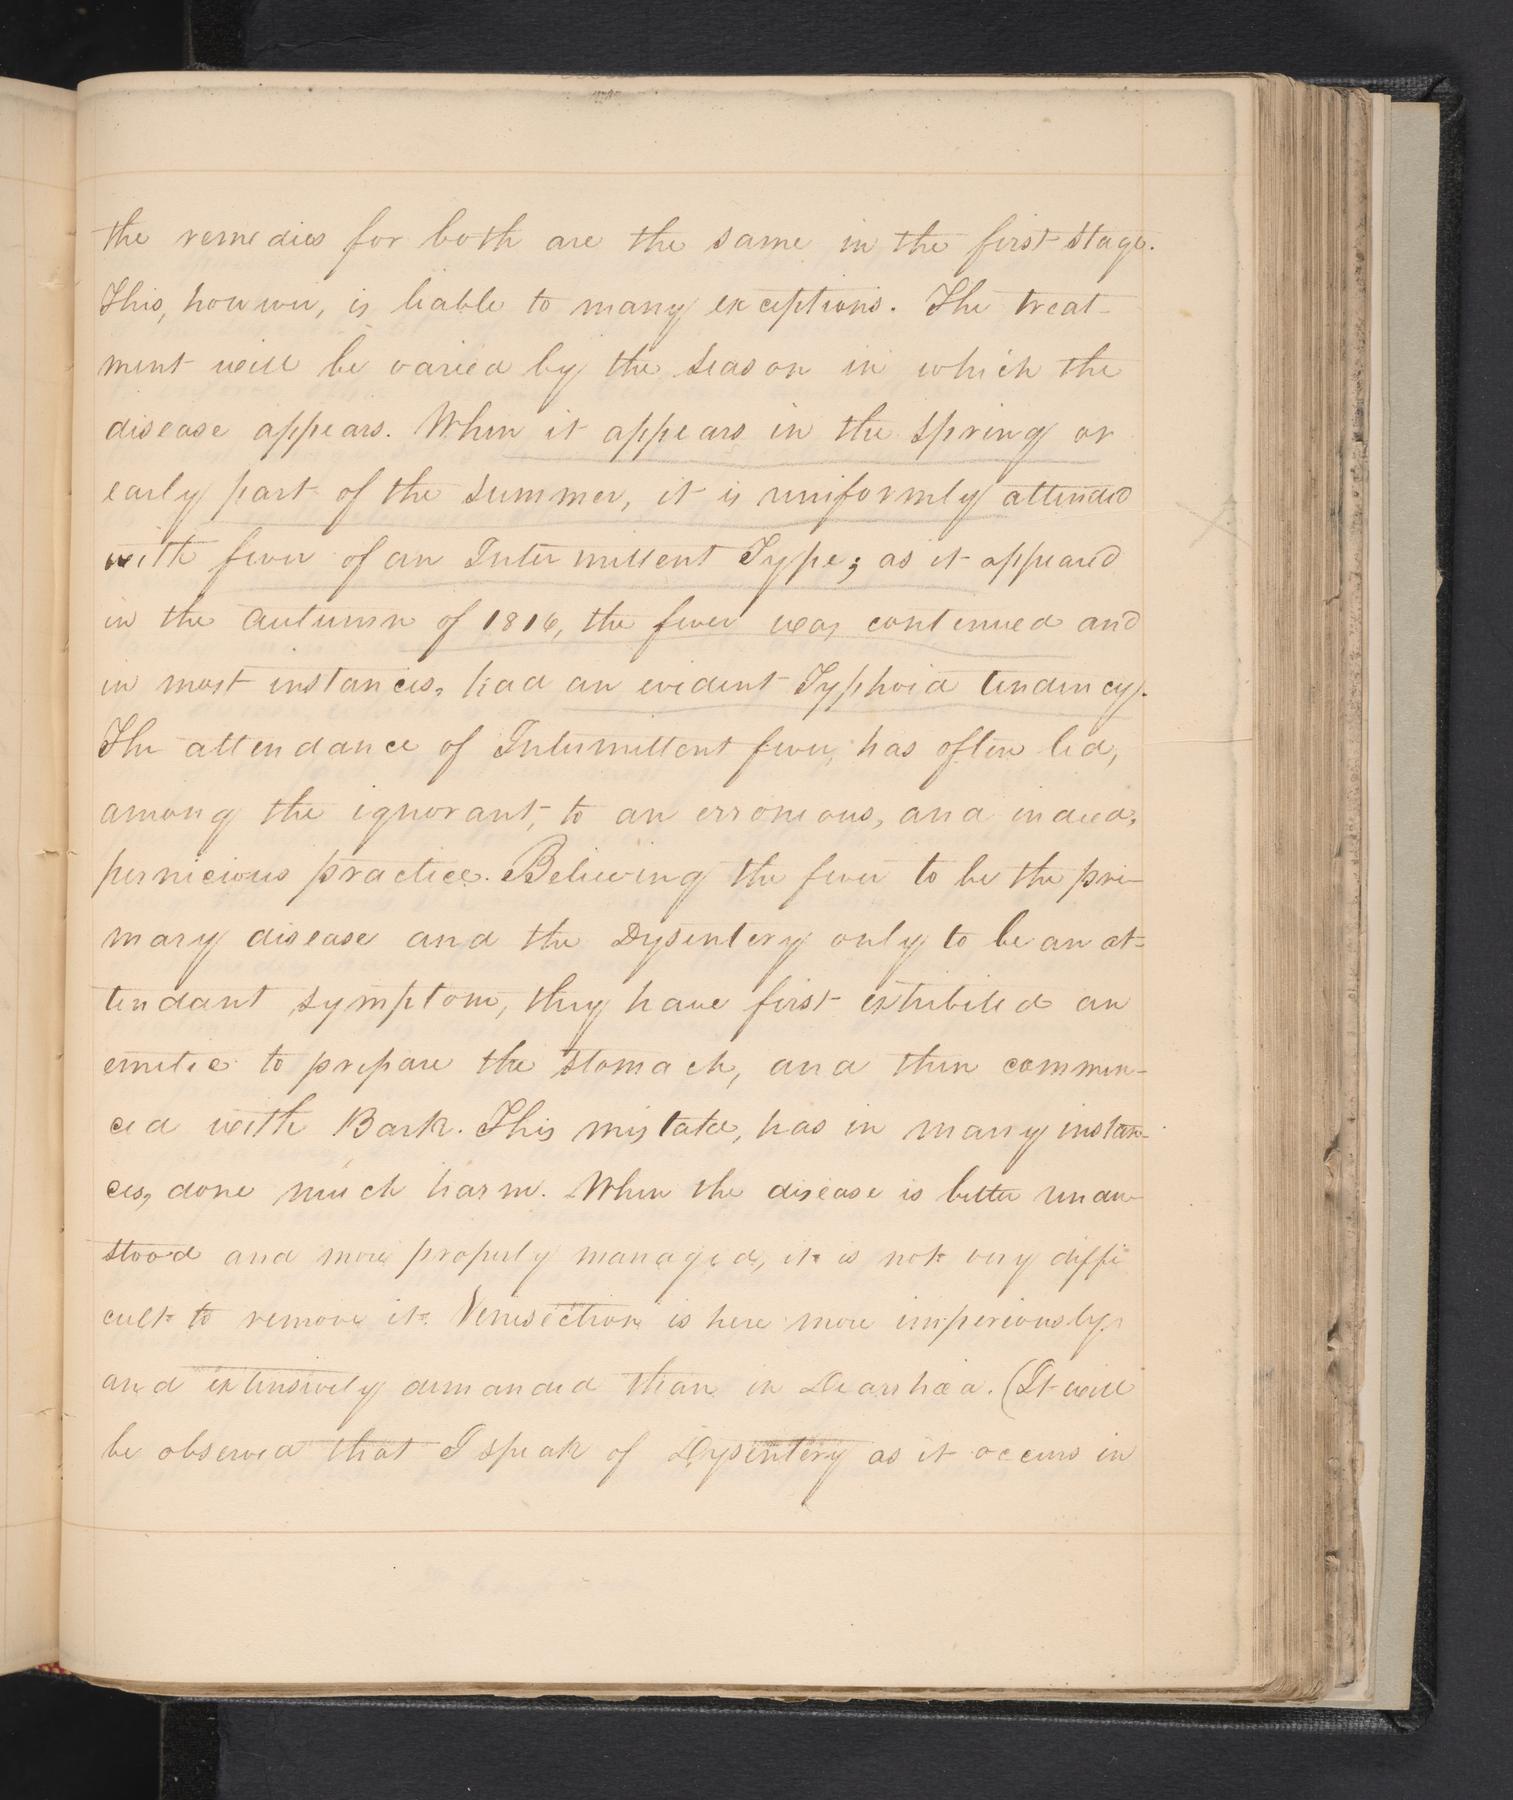 the remedies for both are the same in the first stage.
This, however, is liable to many exceptions. The treat-
ment will be varied by the season in which the
disease appears. When it appears in the spring or
early part of the summer, it is uniformly attended
with fever of an Intermittent Type; as it appeared
in the autumn of 1816, the fever was continued and
in most instances, had an evident Typhoid tendency.
The attendance of Intermittent fever, has often led,
among the ignorant, to an erroneous, and indeed,
pernicious practice. Believing the fever to be the pri-
mary disease and the Dysentery only to be an at-
tendant symptom, they have first exhibited an
emetic to prepare the stomach, and then commen-
ced with Bark. This mistake, has in many instan-
ces, done much harm. When the disease is better under-
stood and more properly managed, it is not very diffi
cult to remove it. Venesection is here more imperiously
and extensively demanded than in Diarrhœa. (It will
be observed that I speak of Dysentery as it occurs in